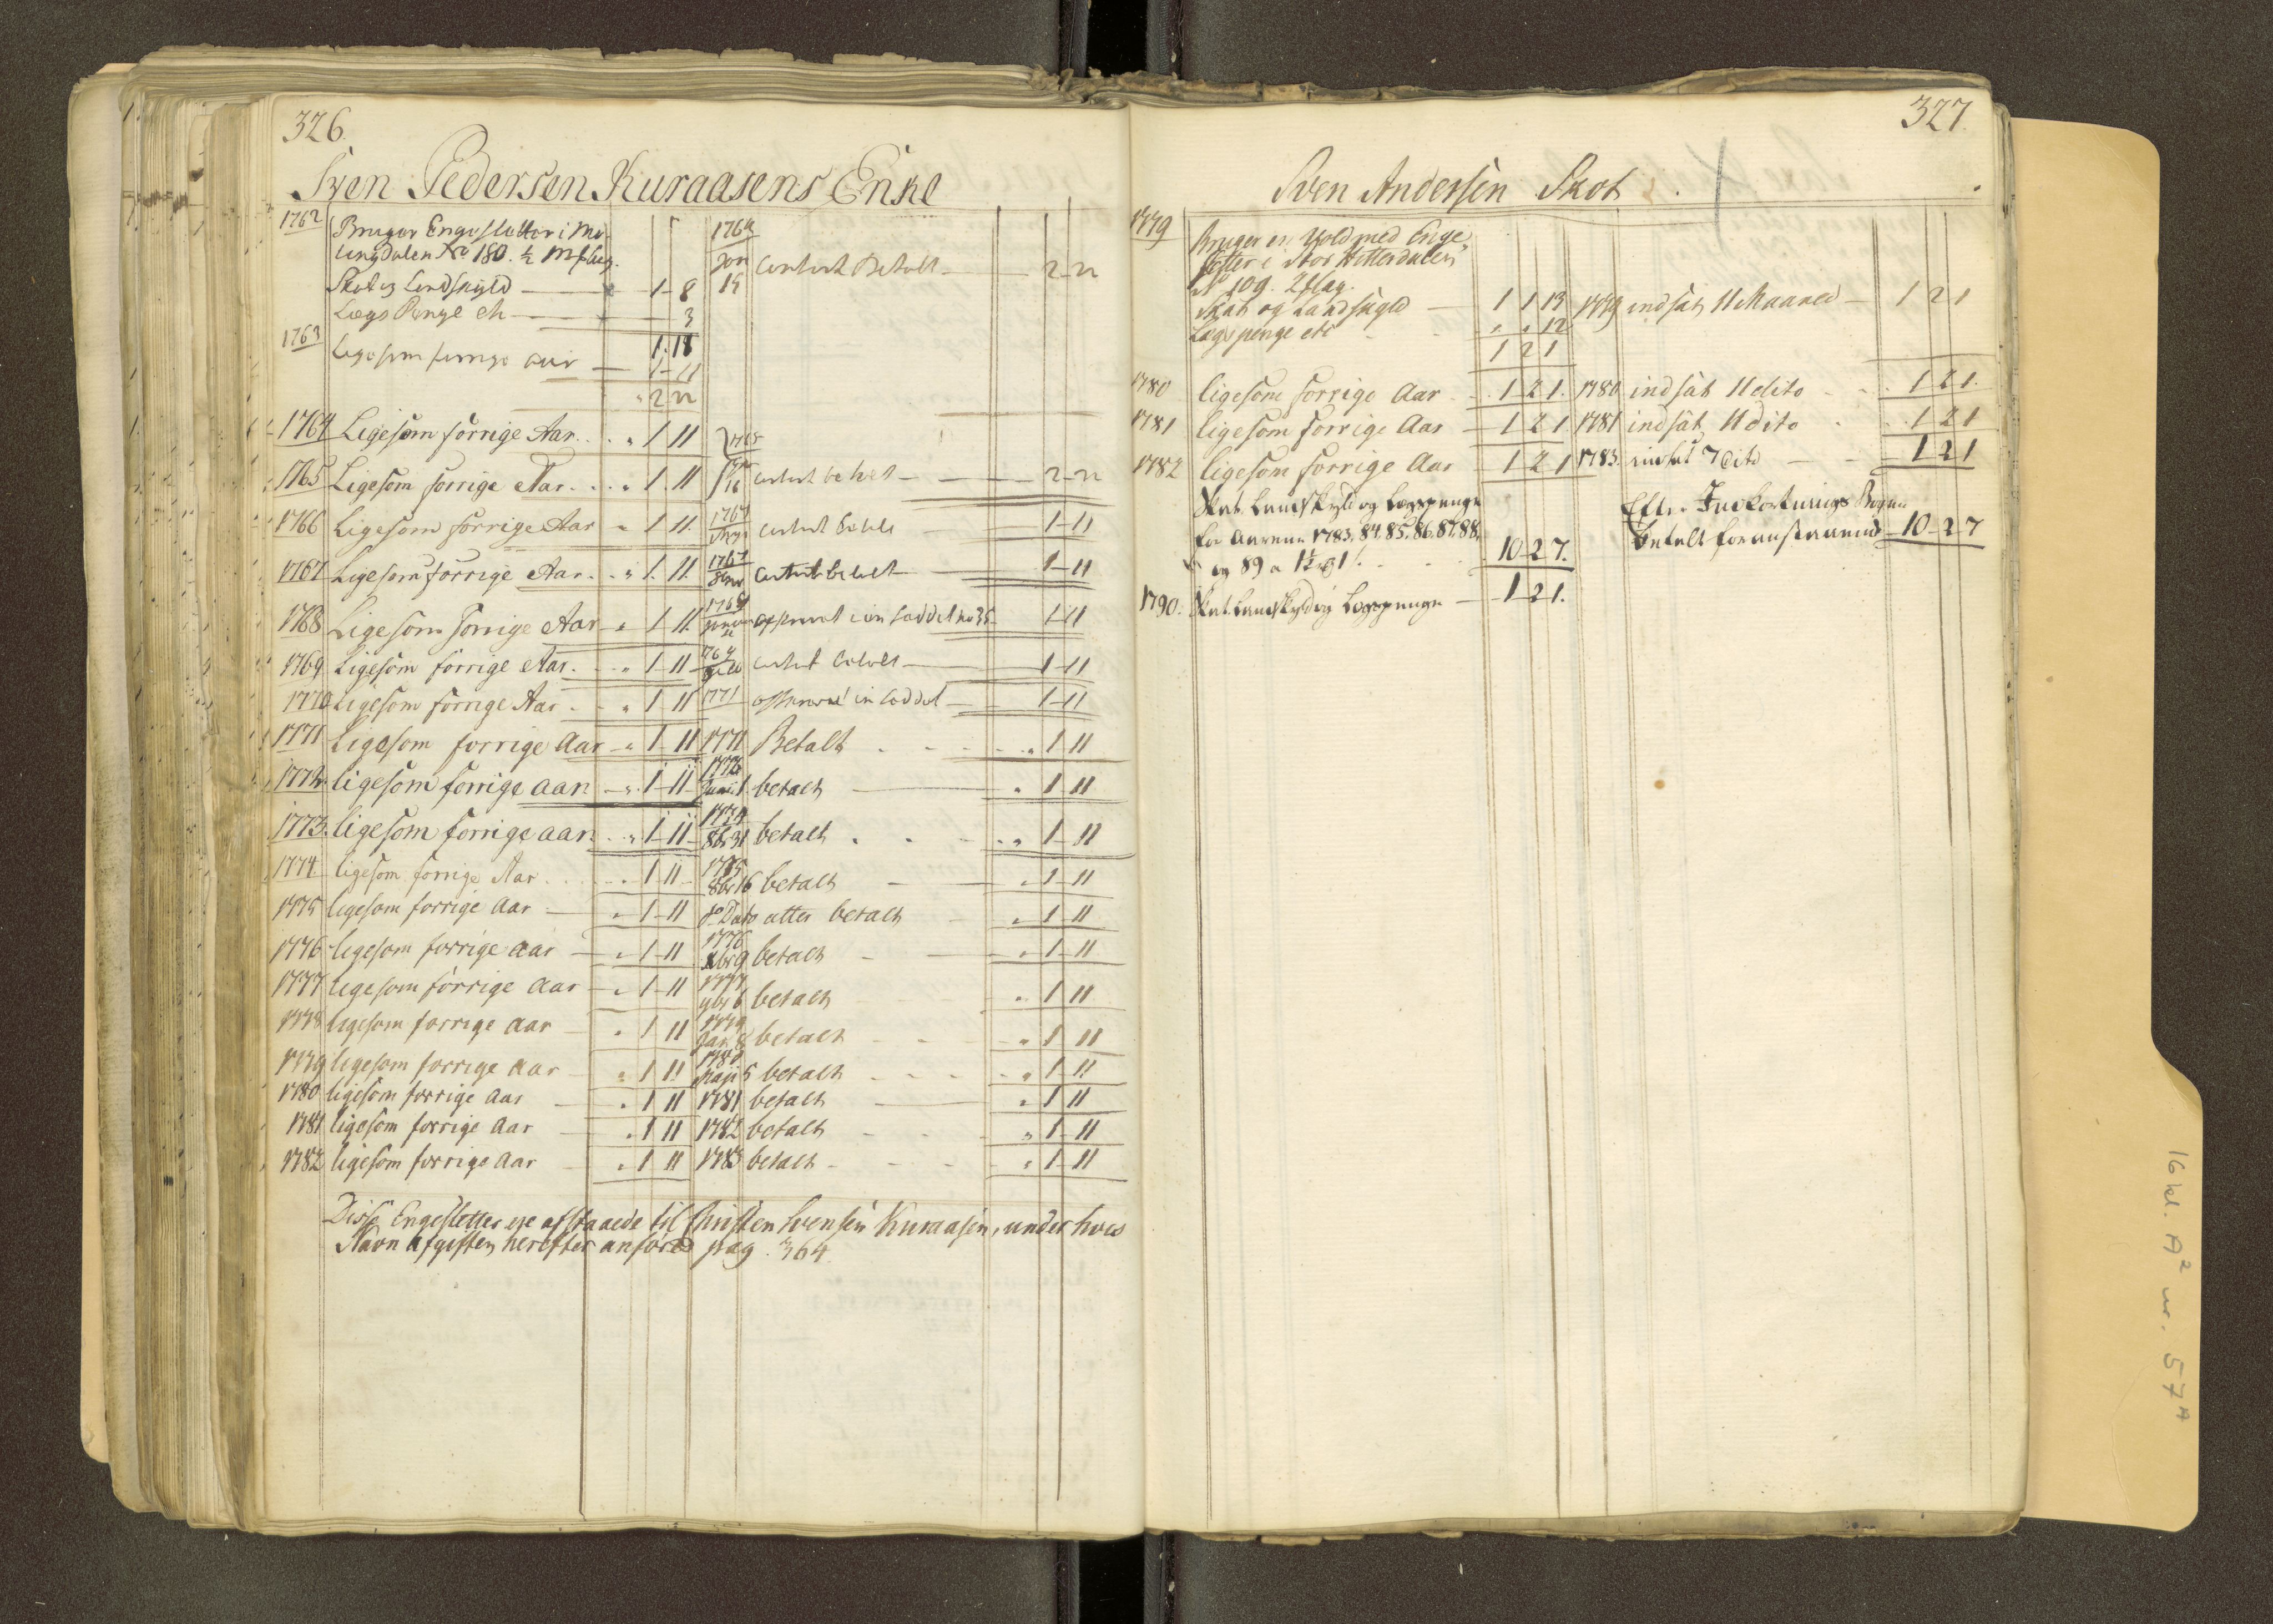 326.
Sven Pedersen Kuraasens Enke
1762 Bruger Engesletter i
dalen No 180. ½ mfl
Skat og Landskyld 1 8
Lægs Penge etc 3
1 11
1763 Lige som forrige aar 1 11
2 22
1764 Jan 15 Contant Betalt 2 22
1764 Ligesom forrige Aar 1 11
1765 Ligesom forrige Aar 1 11 1765 16 Contant betalt 2 22
1766 Ligesom forrige Aar 1 11 1767 Contant betalt 1 11
1767 Ligesom forrige Aar 1 11 1767 Contant betalt 1 11
1768 Ligesom forrige Aar 1 11 1769 afskrevet i en Saddel no 35 1 11
1769 Ligesom forrige Aar 1 11 contant betalt 1 11
1770 Ligesom forrige Aar 1 11 1771 in Saddel 1 11
1771 Ligesom forrige Aar 1 11 1771 Betalt 1 11
1772 ligesom forrige aar 1 11 Junii 1 betalt 1 11
1773 ligesom forrige aar 1 11 1774 8br 31 betalt 1 11
1774 ligesom forrige Aar 1 11 1775 8br 16 betalt 1 11
1775 ligesom forrige Aar 1 11 Dato atter betalt 1 11
1776 ligesom forrige Aar 1 11 1776 Xbr 9 betalt 1 11
1777 ligesom forrige Aar 1 11 1777 9br 6 betalt 1 11
1778 ligesom forrige Aar 1 11 1779 Jan 8 betalt 1 11
1779 ligesom forrige Aar 1 11 1780 Maji 5 betalt 1 11
1780 ligesom forrige Aar 1 11 1781 betalt 1 11
1781 ligesom forrige Aar 1 11 1782 betalt 1 11
1782 ligesom forrige Aar 1 11 1783 betalt 1 11
Disse Engesletter ere afstaaede til Christen Svensen Kuraasen, under hvis
Navn Afgiften herefter anføres pag. 364.
327.
Sven Andersen Skot
1779 Bruger en Vold med Enge
sletter i Stor Hitterdalen
No 109. 2 flag.
Skat og Landskyld 1 1 13 1779 indsat 11 Maaned 1 2 1
Lægspenge etc 12
1 2 1
1780 ligesom forrige Aar 1 2 1 1780 indsat 11 dito 1 2 1
1781 ligesom forrige Aar 1 2 1 1781 indsat 11 dito 1 2 1
1782 ligesom forrige Aar 1 2 1 1783 indsat 7 dito 1 2 1
Skat Landskyld og Lægspenge
for Aarene 1783, 84, 85, 86, 87, 88,
og 89 a 1 10 2 7
Efter Indkortnings Bogen
betalt foranstaaende 10 2 7
1790 Skat Landskyld og Lægspenge 1 2 1
16 kl. A² nr. 57 A